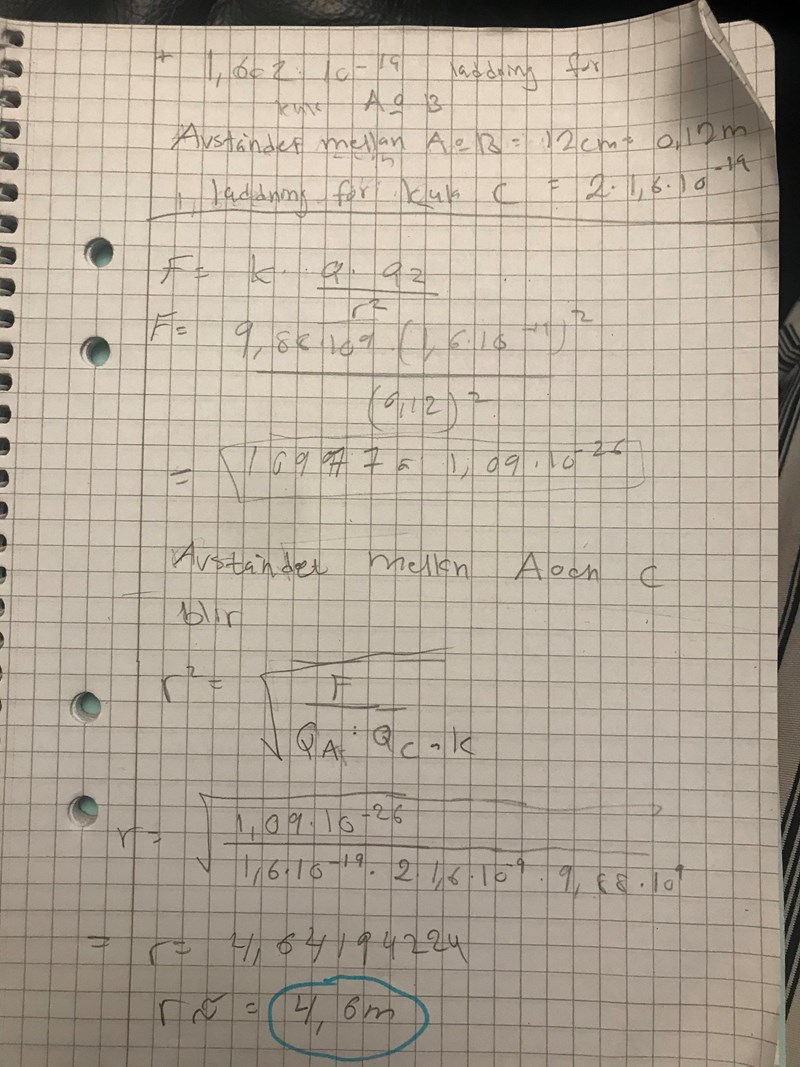 + 1,602 · 10^-19 laddning för
kula A o B
Avståndet mellan A o B = 12cm = 0,12m
laddning för kula C = 2 · 1,6 · 10^-19
F = k · q · q2 / r^2
F = 9,88 · 10^9 (1,6 · 10^-19)^2 / (0,12)^2
= 1,09 · 10^-26
Avståndet mellan A och C
blir
r^2 = √(F / QA · QC · K)
r = √(1,09 · 10^-26 / 1,6 · 10^-19 · 2 · 1,6 · 10^-9 · 9,88 · 10^9)
= r = 4,64194224
r ≈ = 4,6m